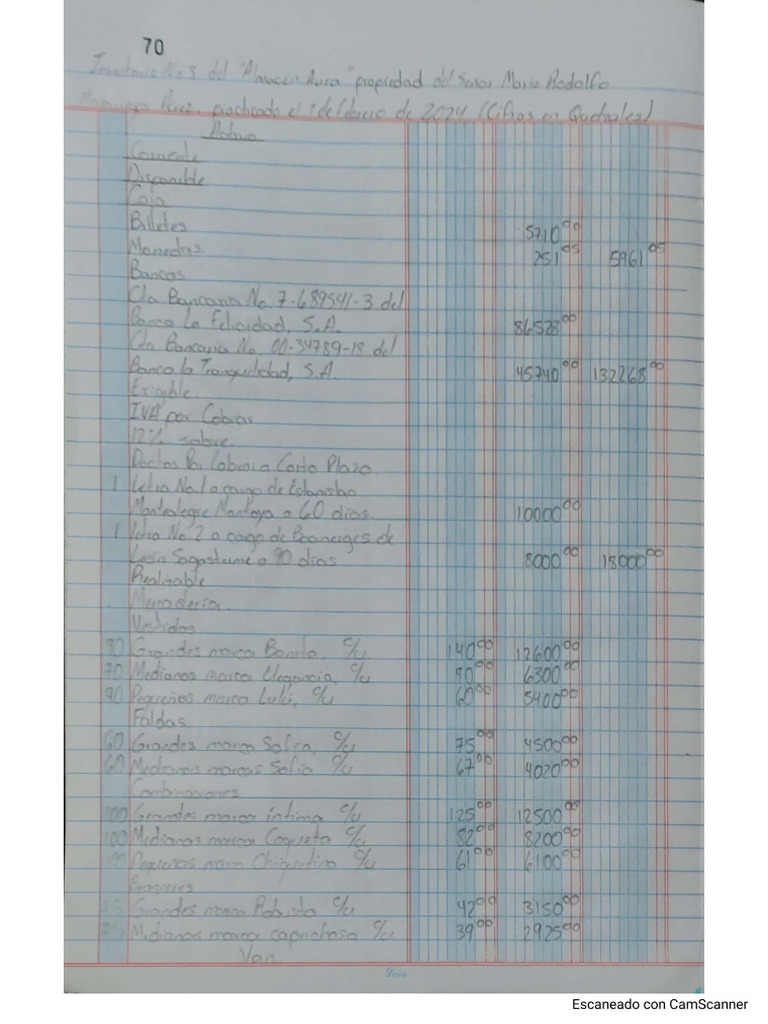 70
Inventario No 3 del "Almacen Aura" propiedad del Señor Mario Rodolfo
Perez, practicado el 1 de febrero de 2024 (Cifras en Quetzales)
Activo
Corriente
Disponible
Caja
Billetes 5710 00
Monedas 251 05 5961 05
Bancos
Cta Bancaria No. 7-689541-3 del
Banco La Felicidad, S.A. 86528 00
Cta Bancaria No. 00-34789-18 del
Banco la Tranquilidad, S.A. 45740 00 132268 00
Exigible
IVA por Cobrar
12% sobre
Doctos Por Cobrar a Corto Plazo
1 Letra No. 1 a cargo de Estanisbo
Montealegre Montoya a 60 dias. 10000 00
1 letra No. 2 a cargo de Boanerges de
Sagastume a 90 dias 8000 00 18000 00
Realizable
Mercaderia.
Vestidos
90 Grandes marca Bonita, c/u 140 00 12600 00
70 Medianos marca Elegancia, c/u 90 00 6300 00
90 Pequeños marca Lulú, c/u 60 00 5400 00
Faldas
60 Grandes marca Safira, c/u 75 00 4500 00
60 Medianas marcas Safia c/u 67 00 4020 00
Combinaciones
100 Grandes marca íntima c/u 125 00 12500 00
100 Medianas marca Coqueta c/u 82 00 8200 00
100 Pequeñas marca Chiquitina c/u 61 00 6100 00
Brasieres
75 Grandes marca Robusta c/u 42 00 3150 00
75 Medianos marca caprichosa c/u 39 00 2925 00
Van
Escaneado con CamScanner